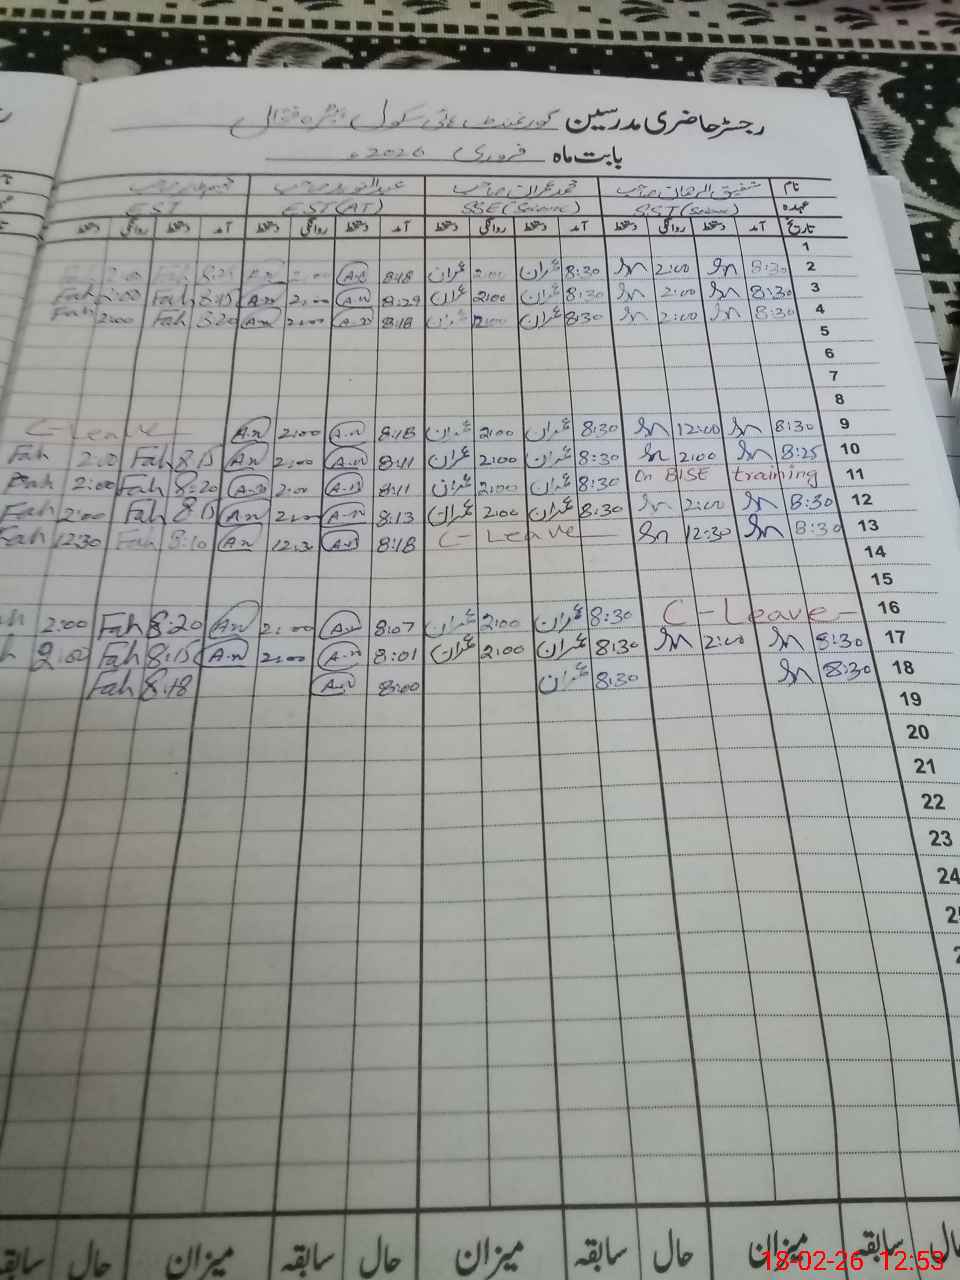 رجسٹر حاضری مدرسین گورنمنٹ ہائی سکول
بابت ماہ فروری 2026ء
نام شفیق الرحمان صاحب محمد عمران صاحب صاحب صاحب
عہدہ SST (Science) SSE (Science) EST (AT) EST
تاریخ آمد دستخط روانگی دستخط آمد دستخط روانگی دستخط آمد دستخط روانگی دستخط آمد دستخط روانگی دستخط
1
2 8:30 Sn 2:00 Sn 8:30 عمران 2:00 عمران 8:18 A.n 2:00 A.n 8:25 Fah 2:00 Fah
3 8:30 Sn 2:00 Sn 8:30 عمران 2:00 عمران 8:29 A.n 2:00 A.n 8:15 Fah 2:00 Fah
4 8:30 Sn 2:00 Sn 8:30 عمران 2:00 عمران 8:18 A.n 2:00 A.n 8:20 Fah 2:00 Fah
5
6
7
8
9 8:30 Sn 12:00 Sn 8:30 عمران 2:00 عمران 8:18 A.n 2:00 A.n C-Leave
10 8:25 Sn 2:00 Sn 8:30 عمران 2:00 عمران 8:11 A.n 2:00 A.n 8:15 Fah 2:00 Fah
11 On BISE training 8:30 عمران 2:00 عمران 8:11 A.n 2:00 A.n 8:20 Fah 2:00 Fah
12 8:30 Sn 2:00 Sn 8:30 عمران 2:00 عمران 8:13 A.n 2:00 A.n 8:15 Fah 2:00 Fah
13 8:30 Sn 12:30 Sn C-Leave 8:18 A.n 12:30 A.n 8:10 Fah 12:30 Fah
14
15
16 C-Leave 8:30 عمران 2:00 عمران 8:07 A.n 2:00 A.n 8:20 Fah 2:00
17 8:30 Sn 2:00 Sn 8:30 عمران 2:00 عمران 8:01 A.n 2:00 A.n 8:15 Fah 2:00
18 8:30 Sn 8:30 عمران 8:00 A.n 8:18 Fah
19
20
21
22
23
24
حال سابقہ میزان حال سابقہ میزان حال سابقہ میزان حال سابقہ
18-02-26 12:53